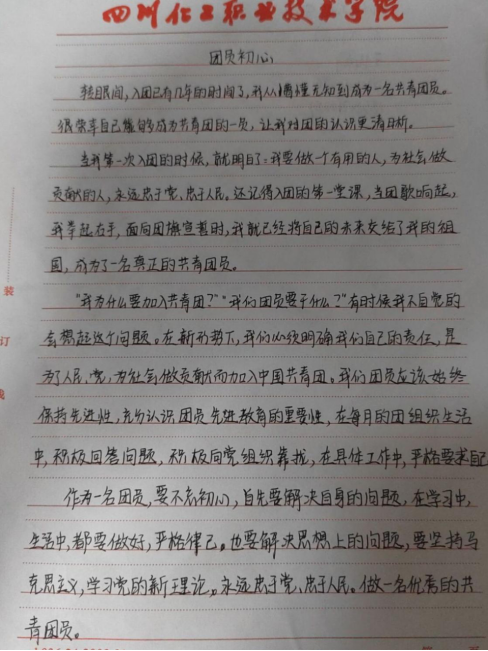 四川化工职业技术学院
团员初心
转眼间,入团已有几年的时间了,我从懵懂无知到成为一名共青团员。
很荣幸自己能够成为共青团的一员,让我对团的认识更清晰。
当我第一次入团的时候,就明白:我要做一个有用的人,为社会做
贡献的人,永远忠于党、忠于人民。还记得入团的第一堂课,当团歌响起,
我举起右手,面向团旗宣誓时,我就已经将自己的未来交给了我的祖
国,成为了一名真正的共青团员。
"我为什么要加入共青团?""我们团员要干什么?"有时候我不自觉的
会想起这个问题。在新形势下,我们必须明确我们自己的责任,是
为了人民、党,为社会做贡献而加入中国共青团。我们团员应该始终
保持先进性,充分认识团员先进教育的重要性,在每月的团组织生活
中,积极回答问题,积极向党组织靠拢,在具体工作中,严格要求自己
作为一名团员,要不忘初心,首先要解决自身的问题,在学习中,
生活中,都要做好,严格律己。也要解决思想上的问题,要坚持马
克思主义,学习党的新理论。永远忠于党、忠于人民。做一名优秀的共
青团员。
装
订
线